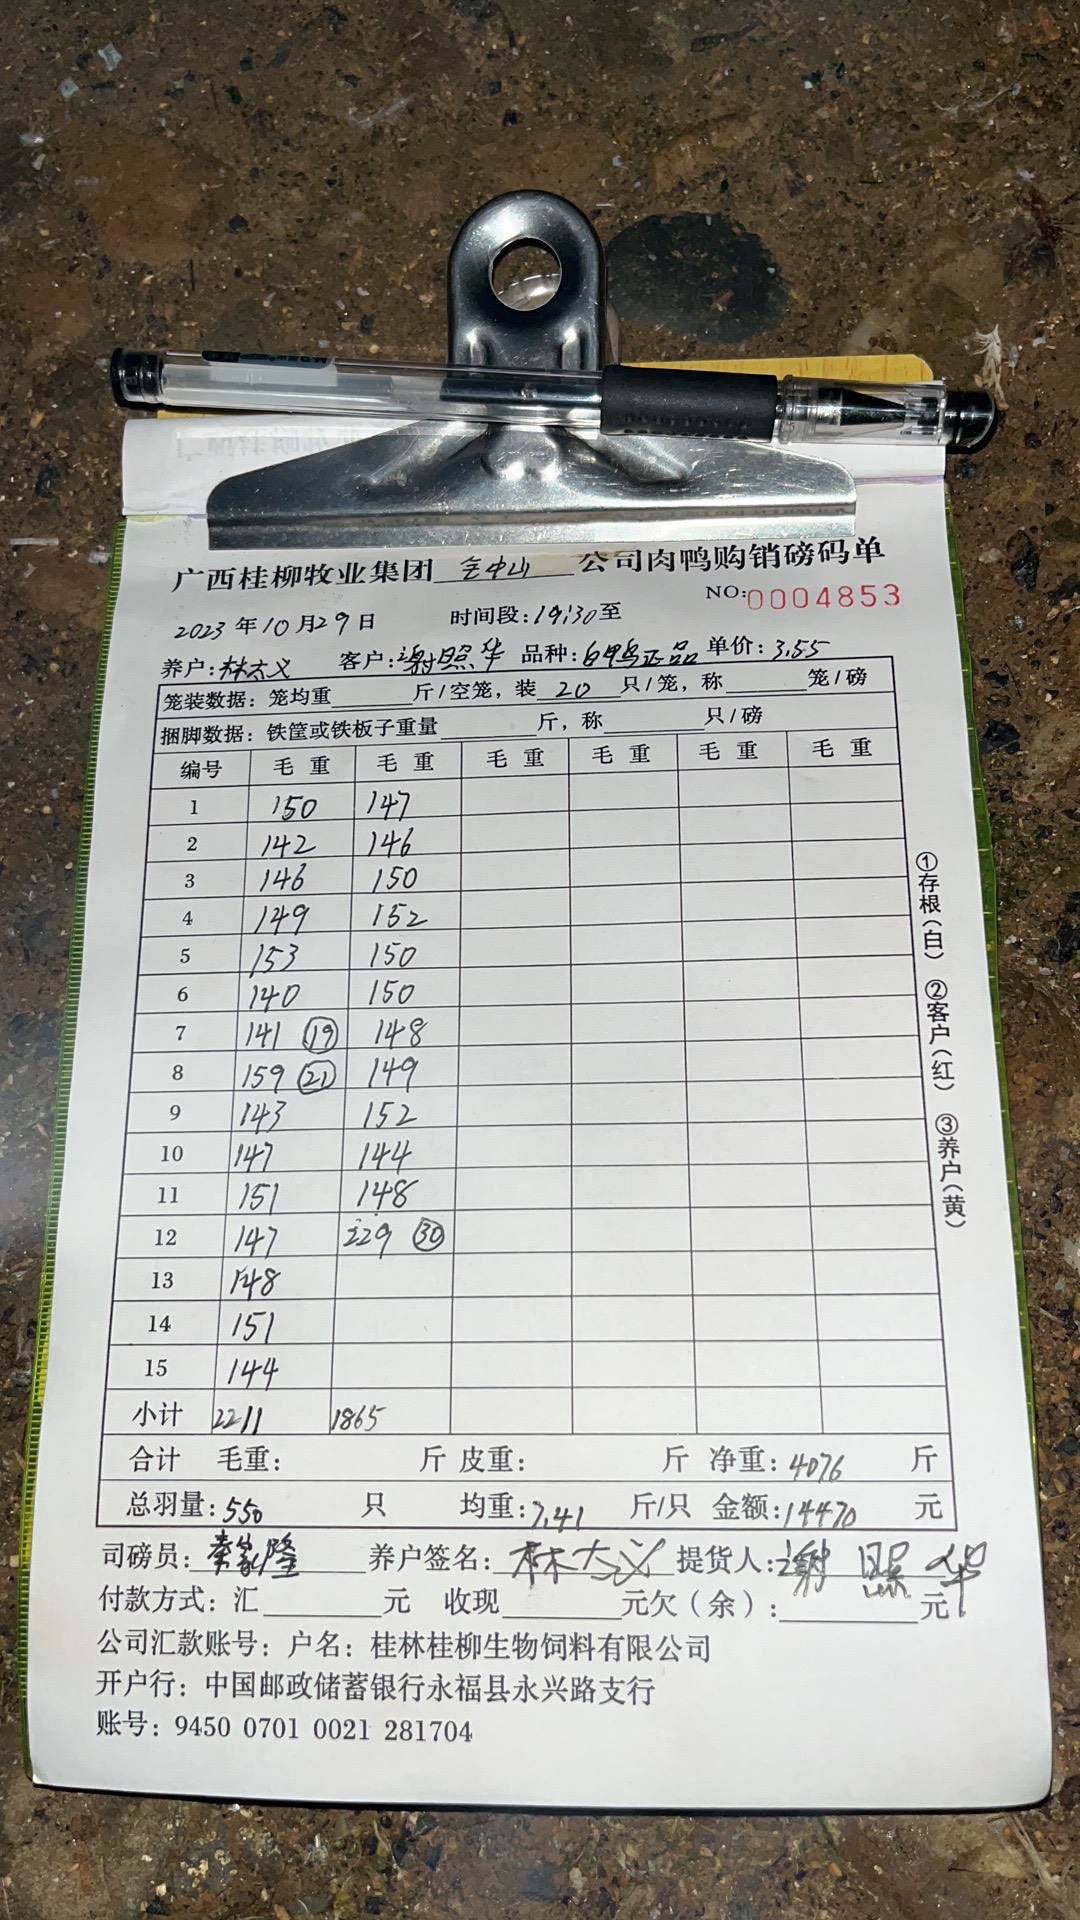 广西桂柳牧业集团 金中山 公司肉鸭购销磅码单
NO:0004853
2023 年 10 月 29 日 时间段:19:30至
养户:林太义 客户:谢照华 品种:白鸭正品 单价:3.55
笼装数据: 笼均重 斤/空笼, 装 20 只/笼, 称 笼/磅
捆脚数据: 铁筐或铁板子重量 斤, 称 只/磅
编号 毛重 毛重 毛重 毛重 毛重 毛重
1 150 147
2 142 146
3 146 150
4 149 152
5 153 150
6 140 150
7 141 19 148
8 159 21 149
9 143 152
10 147 144
11 151 148
12 147 229 30
13 148
14 151
15 144
小计 2211 1865
合计 毛重: 斤 皮重: 斤 净重: 4076 斤
总羽量: 550 只 均重: 7.41 斤/只 金额: 14470 元
司磅员: 秦家隆 养户签名: 林太义 提货人: 谢照华
付款方式: 汇 元 收现 元欠(余): 元
公司汇款账号: 户名: 桂林桂柳生物饲料有限公司
开户行: 中国邮政储蓄银行永福县永兴路支行
账号: 9450 0701 0021 281704
①存根(白) ②客户(红) ③养户(黄)